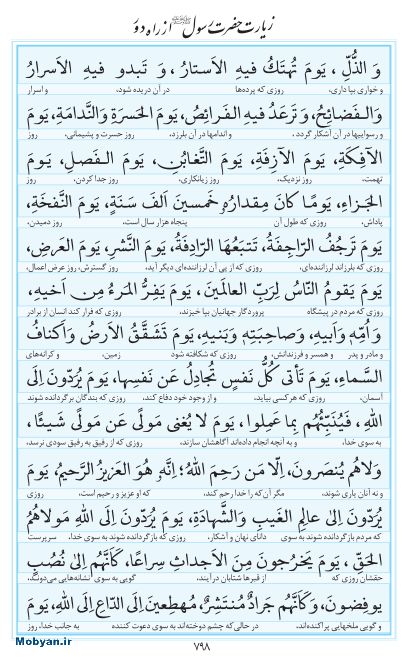 زیارت حضرت رسول ﷺ از راه دور
وَ الذُّلِّ، یَومَ تُهتَكُ فیهِ الاَستارُ، وَ تَبدو فیهِ الاَسرارُ
و خواری بپا داری، روزی که پرده‌ها در آن دریده شود، و اسرار
وَالفَضائِحُ، وَ تَرعَدُ فیهِ الفَرائِصُ، یَومَ الحَسرَةِ وَالنَّدامَةِ، یَومَ
و رسواییها در آن آشکار گردد، و اندامها در آن بلرزد، روز حسرت و پشیمانی، روز
الآفِكَةِ، یَومَ الآزِفَةِ، یَومَ التَّغابُنِ، یَومَ الفَصلِ، یَومَ
تهمت، روز نزدیک، روز زیانکاری، روز جدا کردن، روز
الجَزاءِ، یَومًا كانَ مِقدارُهُ خَمسینَ اَلفَ سَنَةٍ، یَومَ النَّفخَةِ،
پاداش، روزی که طول آن پنجاه هزار سال است، روز دمیدن،
یَومَ تَرجُفُ الرّاجِفَةُ، تَتبَعُهَا الرّادِفَةُ، یَومَ النَّشرِ، یَومَ العَرضِ،
روزی که بلرزاند لرزاننده‌ای، روزی که از پی آن لرزاننده‌ای دیگر آید، روز گسترش، روز عرض اعمال،
یَومَ یَقومُ النّاسُ لِرَبِّ العالَمینَ، یَومَ یَفِرُّ المَرءُ مِن اَخیهِ،
روزی که مردم در پیشگاه پروردگار جهانیان بپا خیزند، روزی که فرار کند انسان از برادر
وَ اُمِّهِ وَاَبیهِ، وَصاحِبَتِهِ وَبَنیهِ، یَومَ تَشَقَّقُ الاَرضُ وَاَكنافُ
و مادر و پدر و همسر و فرزندانش، روزی که شکافته شود زمین، و کرانه‌های
السَّماءِ، یَومَ تَأتی كُلُّ نَفسٍ تُجادِلُ عَن نَفسِها، یَومَ یُرَدّونَ اِلَی
آسمان، روزی که هر کسی بیاید، و از وجود خود دفاع کند، روزی که بندگان برگردانده شوند
اللهِ، فَیُنَبِّئُهُم بِما عَمِلوا، یَومَ لا یُغنی مَولًی عَن مَولًی شَیئًا،
به سوی خدا، و به آنچه انجام داده‌اند آگاهشان سازند، روزی که از رفیق به رفیق سودی نرسد،
وَلاهُم یُنصَرونَ، اِلّا مَن رَحِمَ اللهُ؛ اِنَّهُ هُوَ العَزیزُ الرَّحیمُ، یَومَ
و نه آنان یاری شوند، مگر آن‌که را خدا رحم کند، که او عزیز و رحیم است، روزی
یُرَدّونَ اِلی عالِمِ الغَیبِ وَالشَّهادَةِ، یَومَ یُرَدّونَ اِلَی اللهِ مَولاهُمُ
که مردم بازگردانده شوند به سوی دانای نهان و آشکار، روزی که بازگردانده شوند به سوی خدا، سرپرست
الحَقِّ، یَومَ یَخرُجونَ مِنَ الاَجداثِ سِراعًا، كَاَنَّهُم اِلی نُصُبٍ
حقشان روزی که از قبرها شتابان در آیند، گویی به سوی نشانه‌هایی می‌دوند.
یوفِضونَ، وَ كَاَنَّهُم جَرادٌ مُنتَشِرٌ، مُهطِعینَ اِلَی الدّاعِ اِلَی اللهِ، یَومَ
و گویی ملخهایی پراکنده‌اند، در حالی‌که چشم دوخته‌اند به سوی دعوت کننده به جانب خدا، روز
۷۹۸
Mobyan.ir